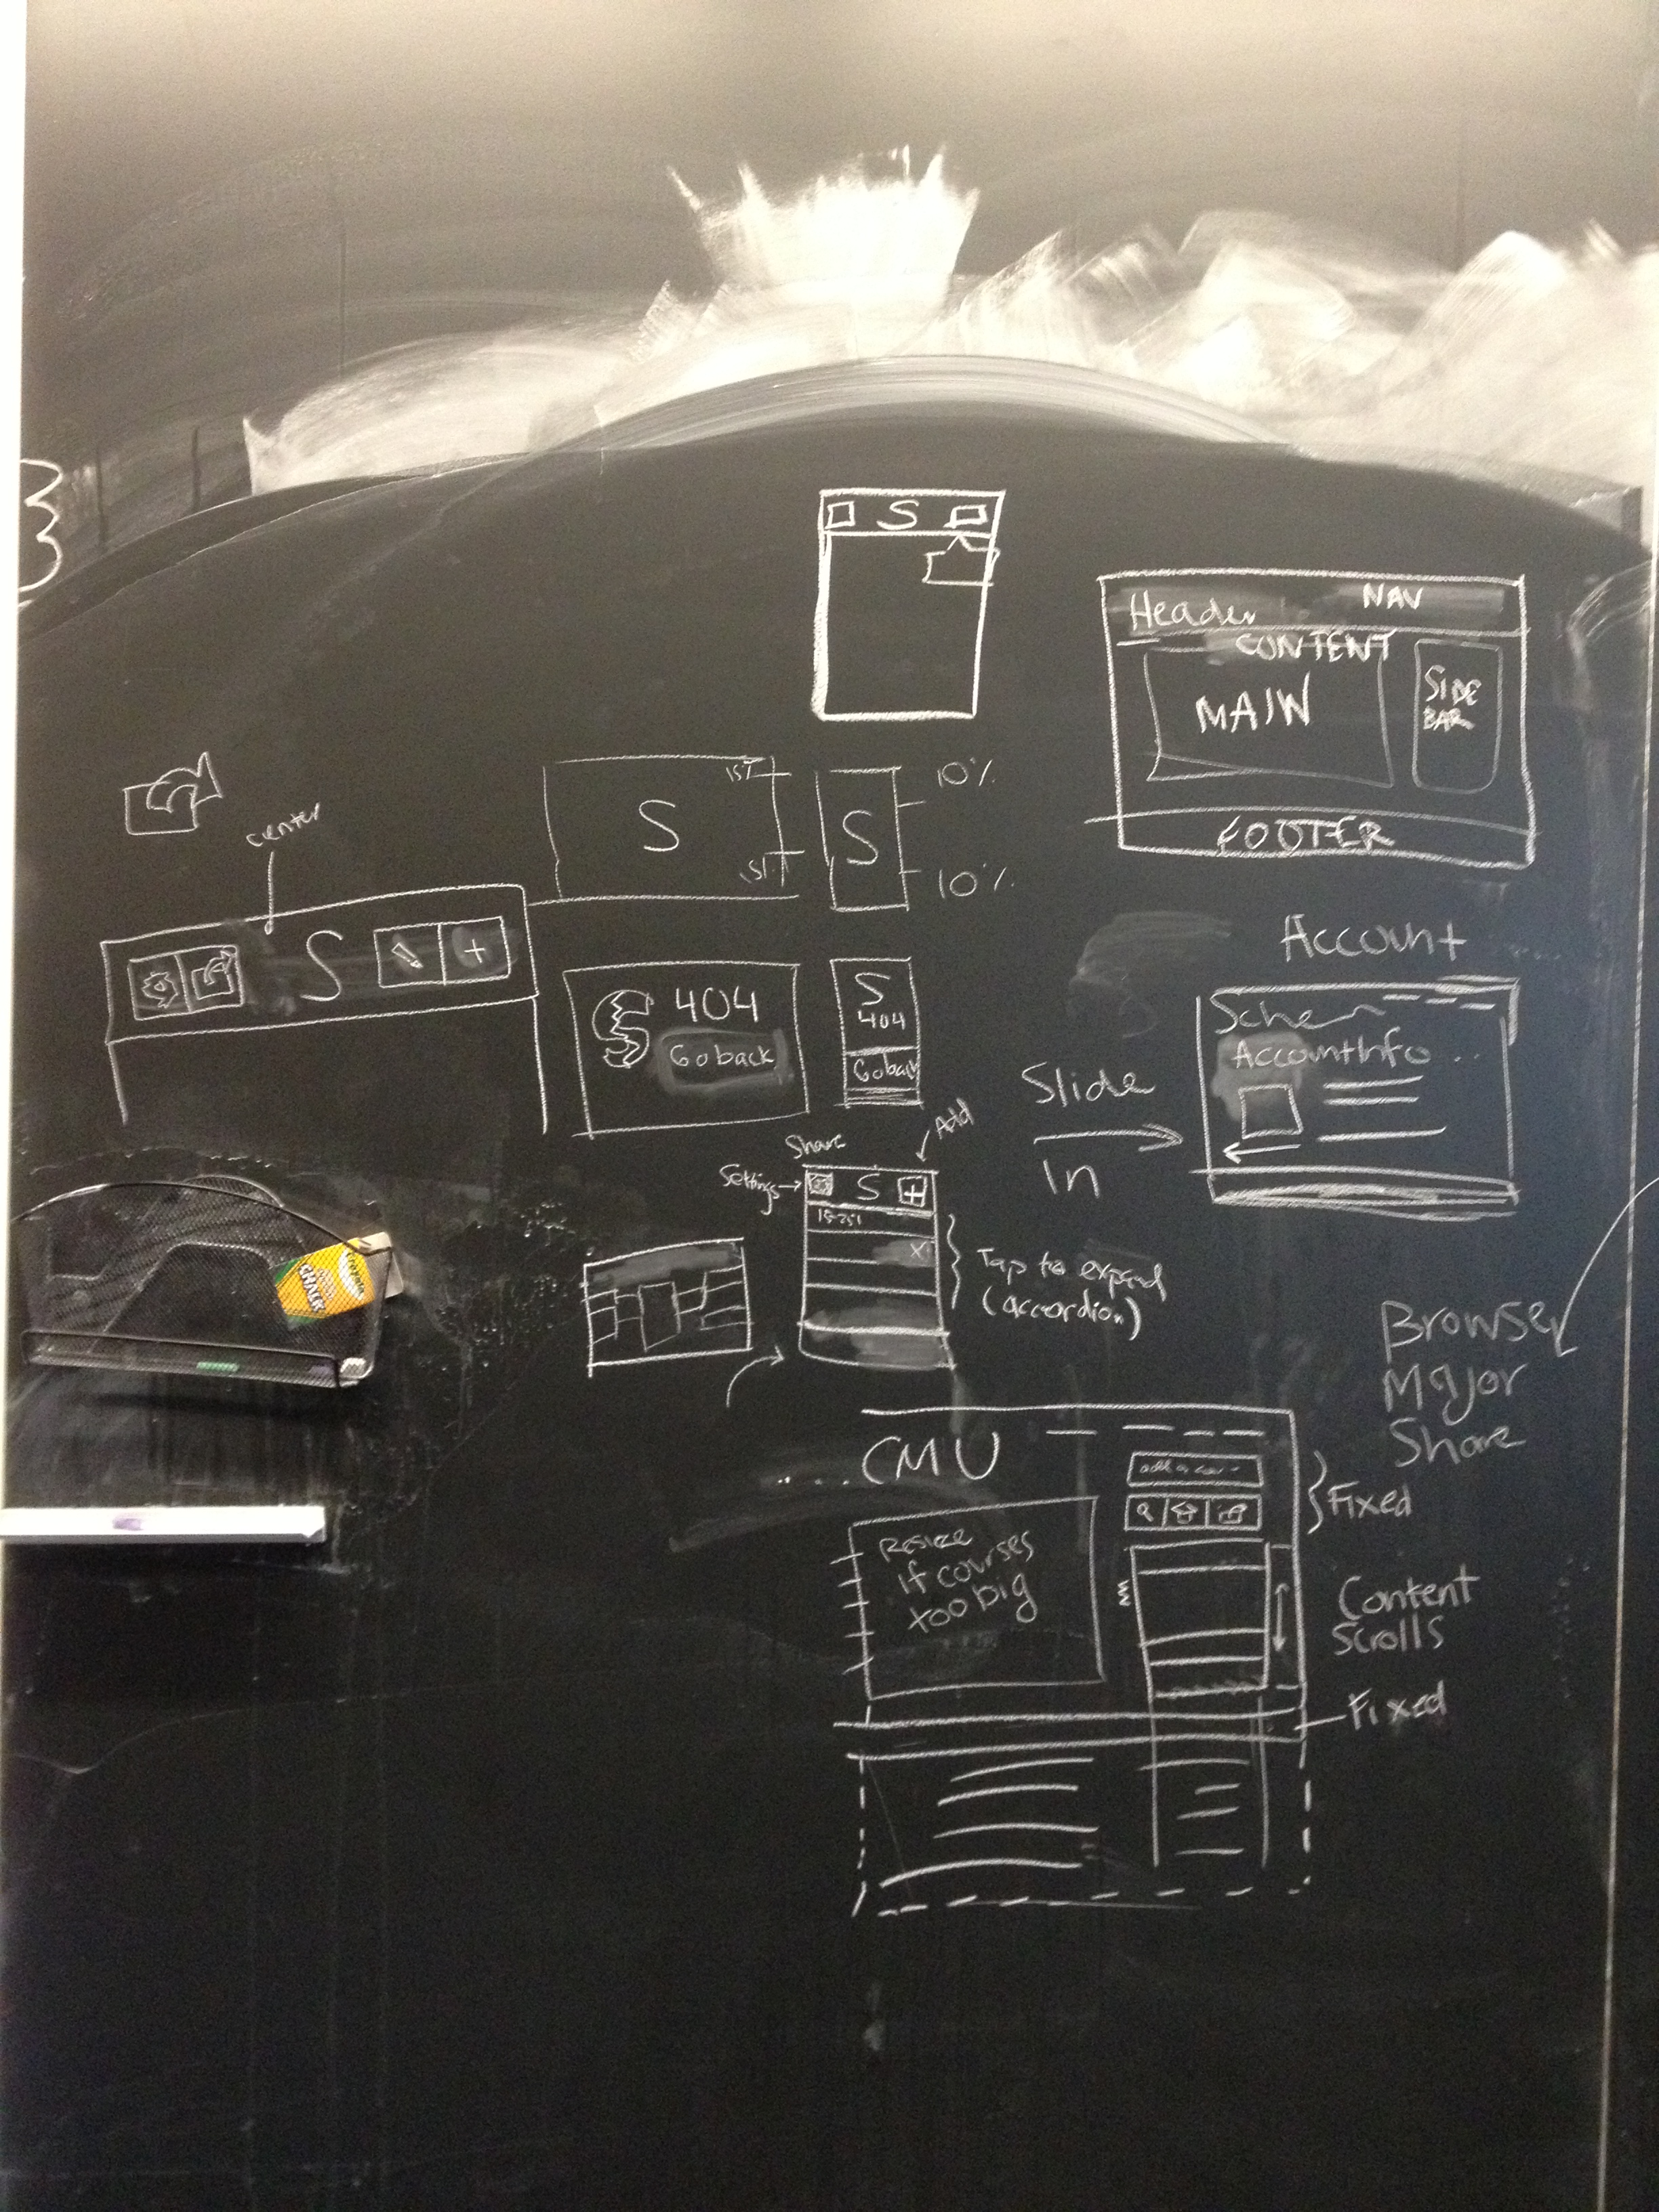 S
Header
NAV
CONTENT
MAIN
SIDE
BAR
FOOTER
center
S
15%
15%
S
10%
10%
S
+
S 404
Go back
S
404
Goback
Account
AccountInfo ..
Slide
In
Share
Add
Settings
S
+
15-251
X
Tap to expand
(accordion)
CHALK
Browser
Major
Share
CMU
Fixed
Resize
if courses
too big
Content
Scrolls
Fixed